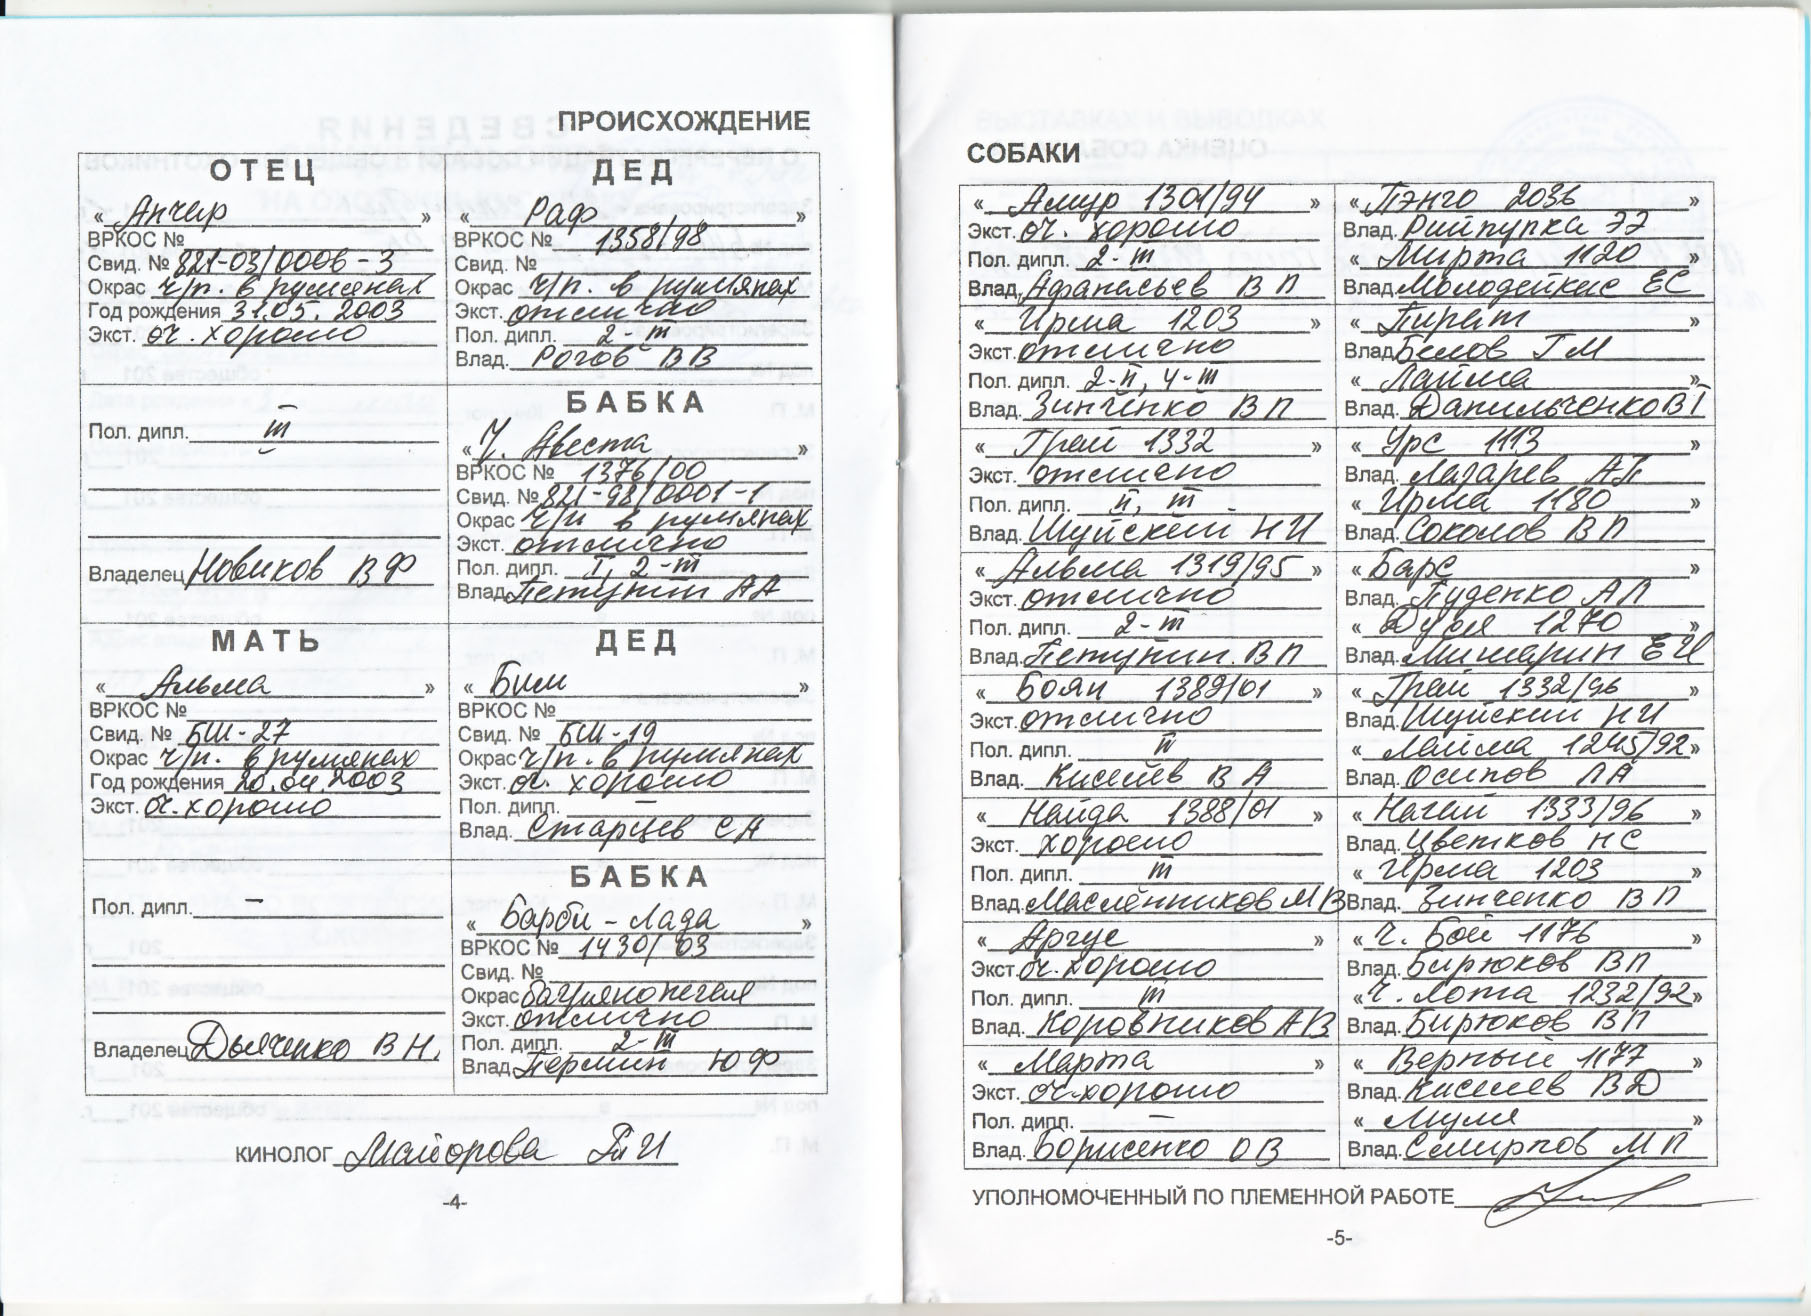 ПРОИСХОЖДЕНИЕ
ОТЕЦ
« Анчар »
ВРКОС №
Свид. № 821-03/0006-3
Окрас ч/п. в румянах
Год рождения 31.05.2003
Экст. оч. хорошо
Пол. дипл. III
Владелец Новиков ВФ
ДЕД
« Раф »
ВРКОС № 1358/98
Свид. №
Окрас ч/п. в румянах
Экст. отлично
Пол. дипл. 2-III
Влад. Рогов ВВ
БАБКА
« Ч. Авеста »
ВРКОС № 1376/00
Свид. № 821-98/0001-1
Окрас ч/п в румянах
Экст. отлично
Пол. дипл. I, 2-III
Влад. Петунин АА
МАТЬ
« Альма »
ВРКОС №
Свид. № БШ-27
Окрас ч/п. в румянах
Год рождения 20.04.2003
Экст. оч. хорошо
Пол. дипл. –
Владелец Дьяченко ВН.
ДЕД
« Бим »
ВРКОС №
Свид. № БШ-19
Окрас ч/п. в румянах
Экст. оч. хорошо
Пол. дипл. –
Влад. Старцев СА
БАБКА
« Барби-Лада »
ВРКОС № 1430/03
Свид. №
Окрас багрянопегая
Экст. отлично
Пол. дипл. 2-III
Влад. Пермин ЮФ
КИНОЛОГ Майорова ГИ
-4-
СОБАКИ
« Амур 1301/94 »
Экст. оч. хорошо
Пол. дипл. 2-III
Влад. Афанасьев ВП
« Пэнго 2036 »
Влад. Рийпупка ЭЭ
« Мирта 1120 »
Влад. Молодейкис ЕС
« Ирма 1203 »
Экст. отлично
Пол. дипл. 2-II, 4-III
Влад. Зинченко ВП
« Пират »
Влад. Белов ГМ
« Лайма »
Влад. Данильченко ВГ
« Грай 1332 »
Экст. отлично
Пол. дипл. II, III
Влад. Шуйский НИ
« Урс 1113 »
Влад. Лагарев АП
« Ирма 1180 »
Влад. Соколов ВП
« Альма 1319/95 »
Экст. отлично
Пол. дипл. 2-III
Влад. Петунин ВП
« Барс »
Влад. Пуденко АЛ
« Дуся 1270 »
Влад. Мишарин ЕИ
« Боян 1389/01 »
Экст. отлично
Пол. дипл. II
Влад. Киселев ВА
« Грай 1332/96 »
Влад. Шуйский НИ
« Лайма 1245/92 »
Влад. Осипов ЛА
« Найда 1388/01 »
Экст. хорошо
Пол. дипл. III
Влад. Масленников МВ
« Нагай 1333/96 »
Влад. Цветков НС
« Ирма 1203 »
Влад. Зинченко ВП
« Аргус »
Экст. оч. хорошо
Пол. дипл. III
Влад. Коровников АВ
« Ч. Бой 1176 »
Влад. Бирюков ВП
« Ч. Лота 1232/92 »
Влад. Бирюков ВП
« Марта »
Экст. оч. хорошо
Пол. дипл. –
Влад. Борисенко ОВ
« Верный 1177 »
Влад. Киселев ВД
« Муля »
Влад. Смирнов МП
УПОЛНОМОЧЕННЫЙ ПО ПЛЕМЕННОЙ РАБОТЕ
-5-